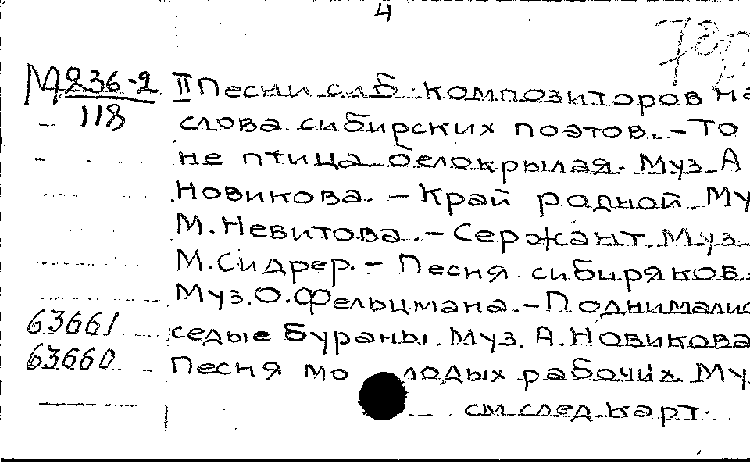 4
М 236-2 II Песни сиб. композиторов на
118 слова сибирских поэтов. - То
не птица белокрылая. Муз. А
Новикова. - Край родной Му
М. Невитова. - Сержант. Муз.
М. Сидрер. - Песня сибиряков.
Муз. О. Фельцмана. - Поднимались
63661 седые бураны. Муз. А. Новикова
63660 Песня молодых рабочих Му
см. след. карт.